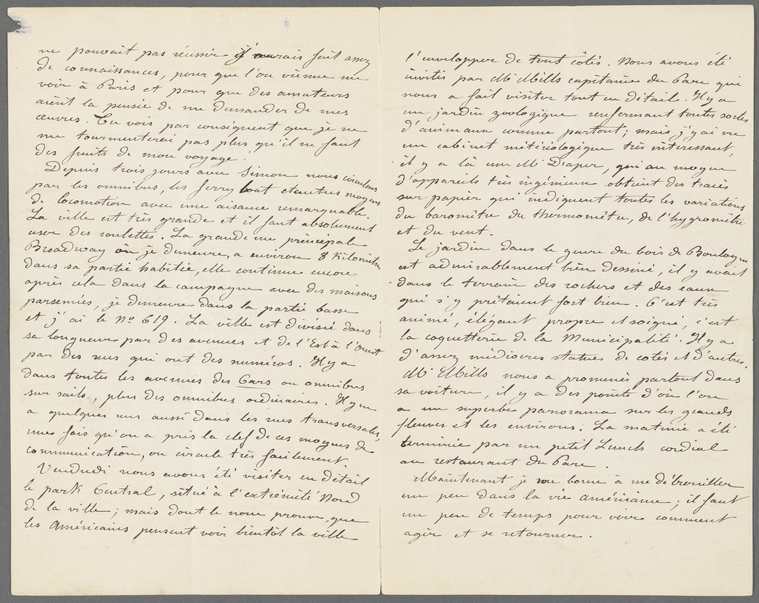 ne pouvait pas réussir j'aurais fait assez
de connaissances, pour que l'on vienne me
voir à Paris et pour que des amateurs
aient la pensée de me demander de mes
œuvres. Tu vois par conséquent que je ne
me tourmenterai pas plus qu'il ne faut
des fruits de mon voyage
Depuis trois jours avec Simon nous circulons
par les omnibus, les ferry boat et autres moyens
de locomotion avec une aisance remarquable.
La ville est très grande et il faut absolument
user des roulettes. La grande rue principale
Broadway où je demeure, a environ 8 Kilomètres
dans sa partie habitée, elle continue encore
après cela dans la campagne avec des maisons
parsemées, je demeure dans la partie basse
et j'ai le No 619. La ville est divisée dans
sa longueur par des avenues et de l'Est à l'Ouest
par des rues qui ont des numéros. Il y a
dans toutes les avenues des Cars ou omnibus
sur rails, plus des omnibus ordinaires. Il y en
a quelques uns aussi dans les rues transversales,
une fois qu'on a pris la clef de ces moyens de
communication, on circule très facilement
Vendredi nous avons été visiter en détail
le park Central, situé à l'extrémité Nord
de la ville; mais dont le nom prouve, que
les Américains pensent voir bientôt la ville
l'envelopper de tout côtés. Nous avons été
invités par Mr Mills capitaine du Parc qui
nous a fait visiter tout en détail. Il y a
un jardin zoologique renfermant toutes sortes
d'animaux comme partout; mais j'y ai vu
un cabinet météologique très intéressant,
il y a là un Mr Draper, qui au moyen
d'appareils très ingénieux obtient des tracés
sur papier qui indiquent toutes les variations
du baromètre du thermomètre, de l'hygromètre
et du vent.
Le jardin dans le genre du bois de Boulogne
est admirablement bien dessiné, il y avait
dans le terrain des rochers et des eaux
qui s'y prêtaient fort bien. C'est très
animé, élégant propre et soigné, c'est
la coquetterie de la Municipalité. Il y a
d'assez médiocres statues de cotés et d'autres,
Mr Mills nous a promenés partout dans
sa voiture, il y a des points d'où l'on
a un superbe panorama sur les grands
fleuves et les environs. La matinée a été
terminée par un petit Lunch cordial
au restaurant du Parc.
Maintenant je me borne à me débrouiller
un peu dans la vie américaine; il faut
un peu de temps pour voir comment
agir et se retourner.